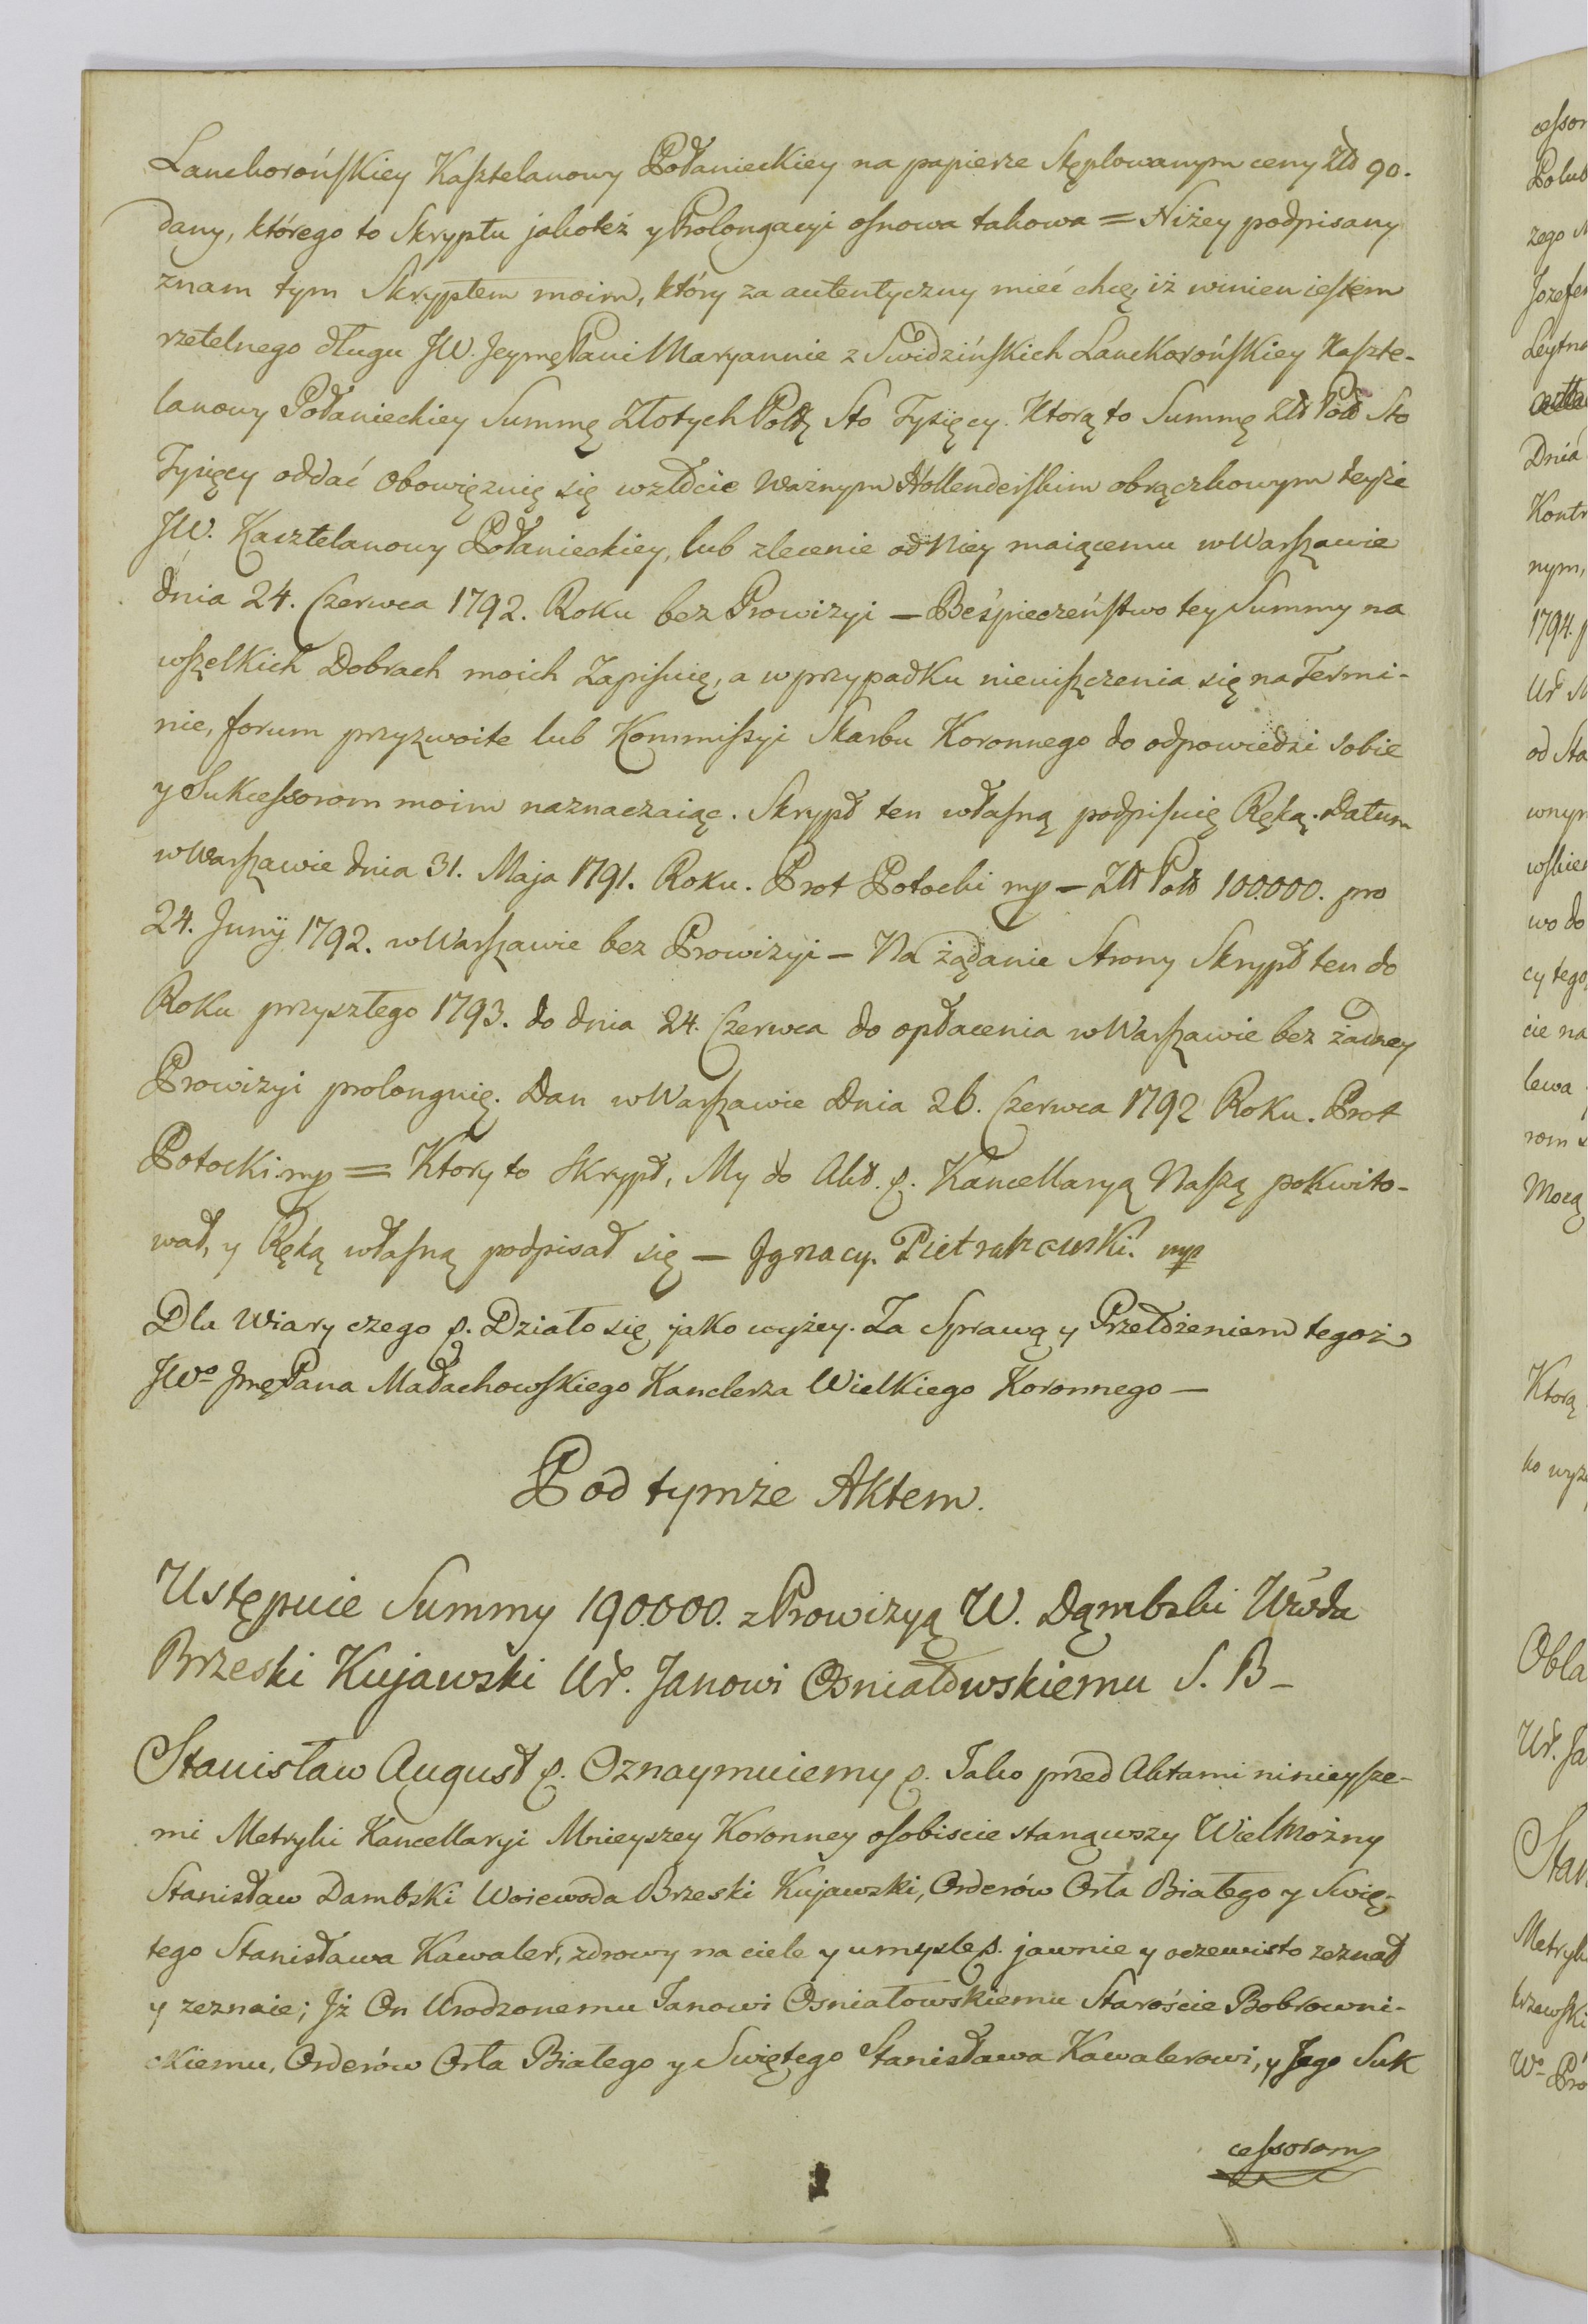 Lanckorońskiey Kasztelanowy Połanieckiey na papierze Stęplowanym ceny Złł 90.
dany, którego to Skryptu jakoteż y Prolongacyi osnowa takowa = Niżey podpisany
znam tym Skryptem moim, który za autentyczny mieć chcę iż winien iestem
rzetelnego długu JW. Jeymę Pani Maryannie z Swidzińskich Lanckorońskiey Kaszte-
lanowy Połanieckiey Summę Złotych Polł Sto Tysięcy. Ktorą to Summę Złł Polł Sto
Tysięcy oddać obowięzuię się wzłocie ważnym Hollenderskim obrączkowym teyże
JW. Kasztelanowy Połanieckiey, lub zlecenie od Niey maiącemu w Warszawie
dnia 24. Czerwca 1792. Roku bez Prowizyi — Beśpieczeństwo tey Summy na
wszelkich Dobrach moich Zapisuię, a w przypadku nieuiszczenia się na Termi-
nie, forum przyzwoite lub Kommissyi Skarbu Koronnego do odpowiedzi sobie
y Sukcessorom moim naznaczaiąc. Skrypt ten własną podpisuię Ręką. Datum
w Warszawie dnia 31. Maja 1791. Roku. Prot Potocki mp — Złł Polł 100.000. pro
24. Junÿ 1792. w Warszawie bez Prowizyi — Na żądanie Strony Skrypt ten do
Roku przyszłego 1793. do dnia 24. Czerwca do opłacenia w Warszawie bez żadney
Prowizyi prolonguię. Dan w Warszawie Dnia 26. Czerwca 1792 Roku. Prot
Potocki mp = Ktory to skrypt, My do Akt. &. Kancellaryą Naszą pokwito-
wał, y Ręką własną podpisał się — Jgnacy. Pietrakowski. mp
Dla Wiary czego &. Działo się jako wyżey. Za Sprawą y Przełożeniem tegoż
JWo Jmę Pana Małachowskiego Kanclerza Wielkiego Koronnego —
Pod tymże Aktem.
Ustępuie Summy 190000. z Prowizyą W. Dąmbski Wwda
Brzeski Kujawski Ur. Janowi Osniałowskiemu S. B —
Stanisław August &. Oznaymuiemy &. Jako przed Aktami ninieysze-
mi Metryki Kancellaryi Mnieyszey Koronney osobiscie stanąwszy Wielmożny
Stanisław Dambski Woiewoda Brzeski Kujawski, Orderów Orła Białego y Swię-
tego Stanisława Kawaler, zdrowy na ciele y umysle &. jawnie y oczewisto zeznał
y zeznaie; Jż On Urodzonemu Janowi Osniałowskiemu Staroście Bobrowni-
ckiemu, Orderów Orła Białego y Swiętego Stanisława Kawalerowi, y Jego Suk
cessorom